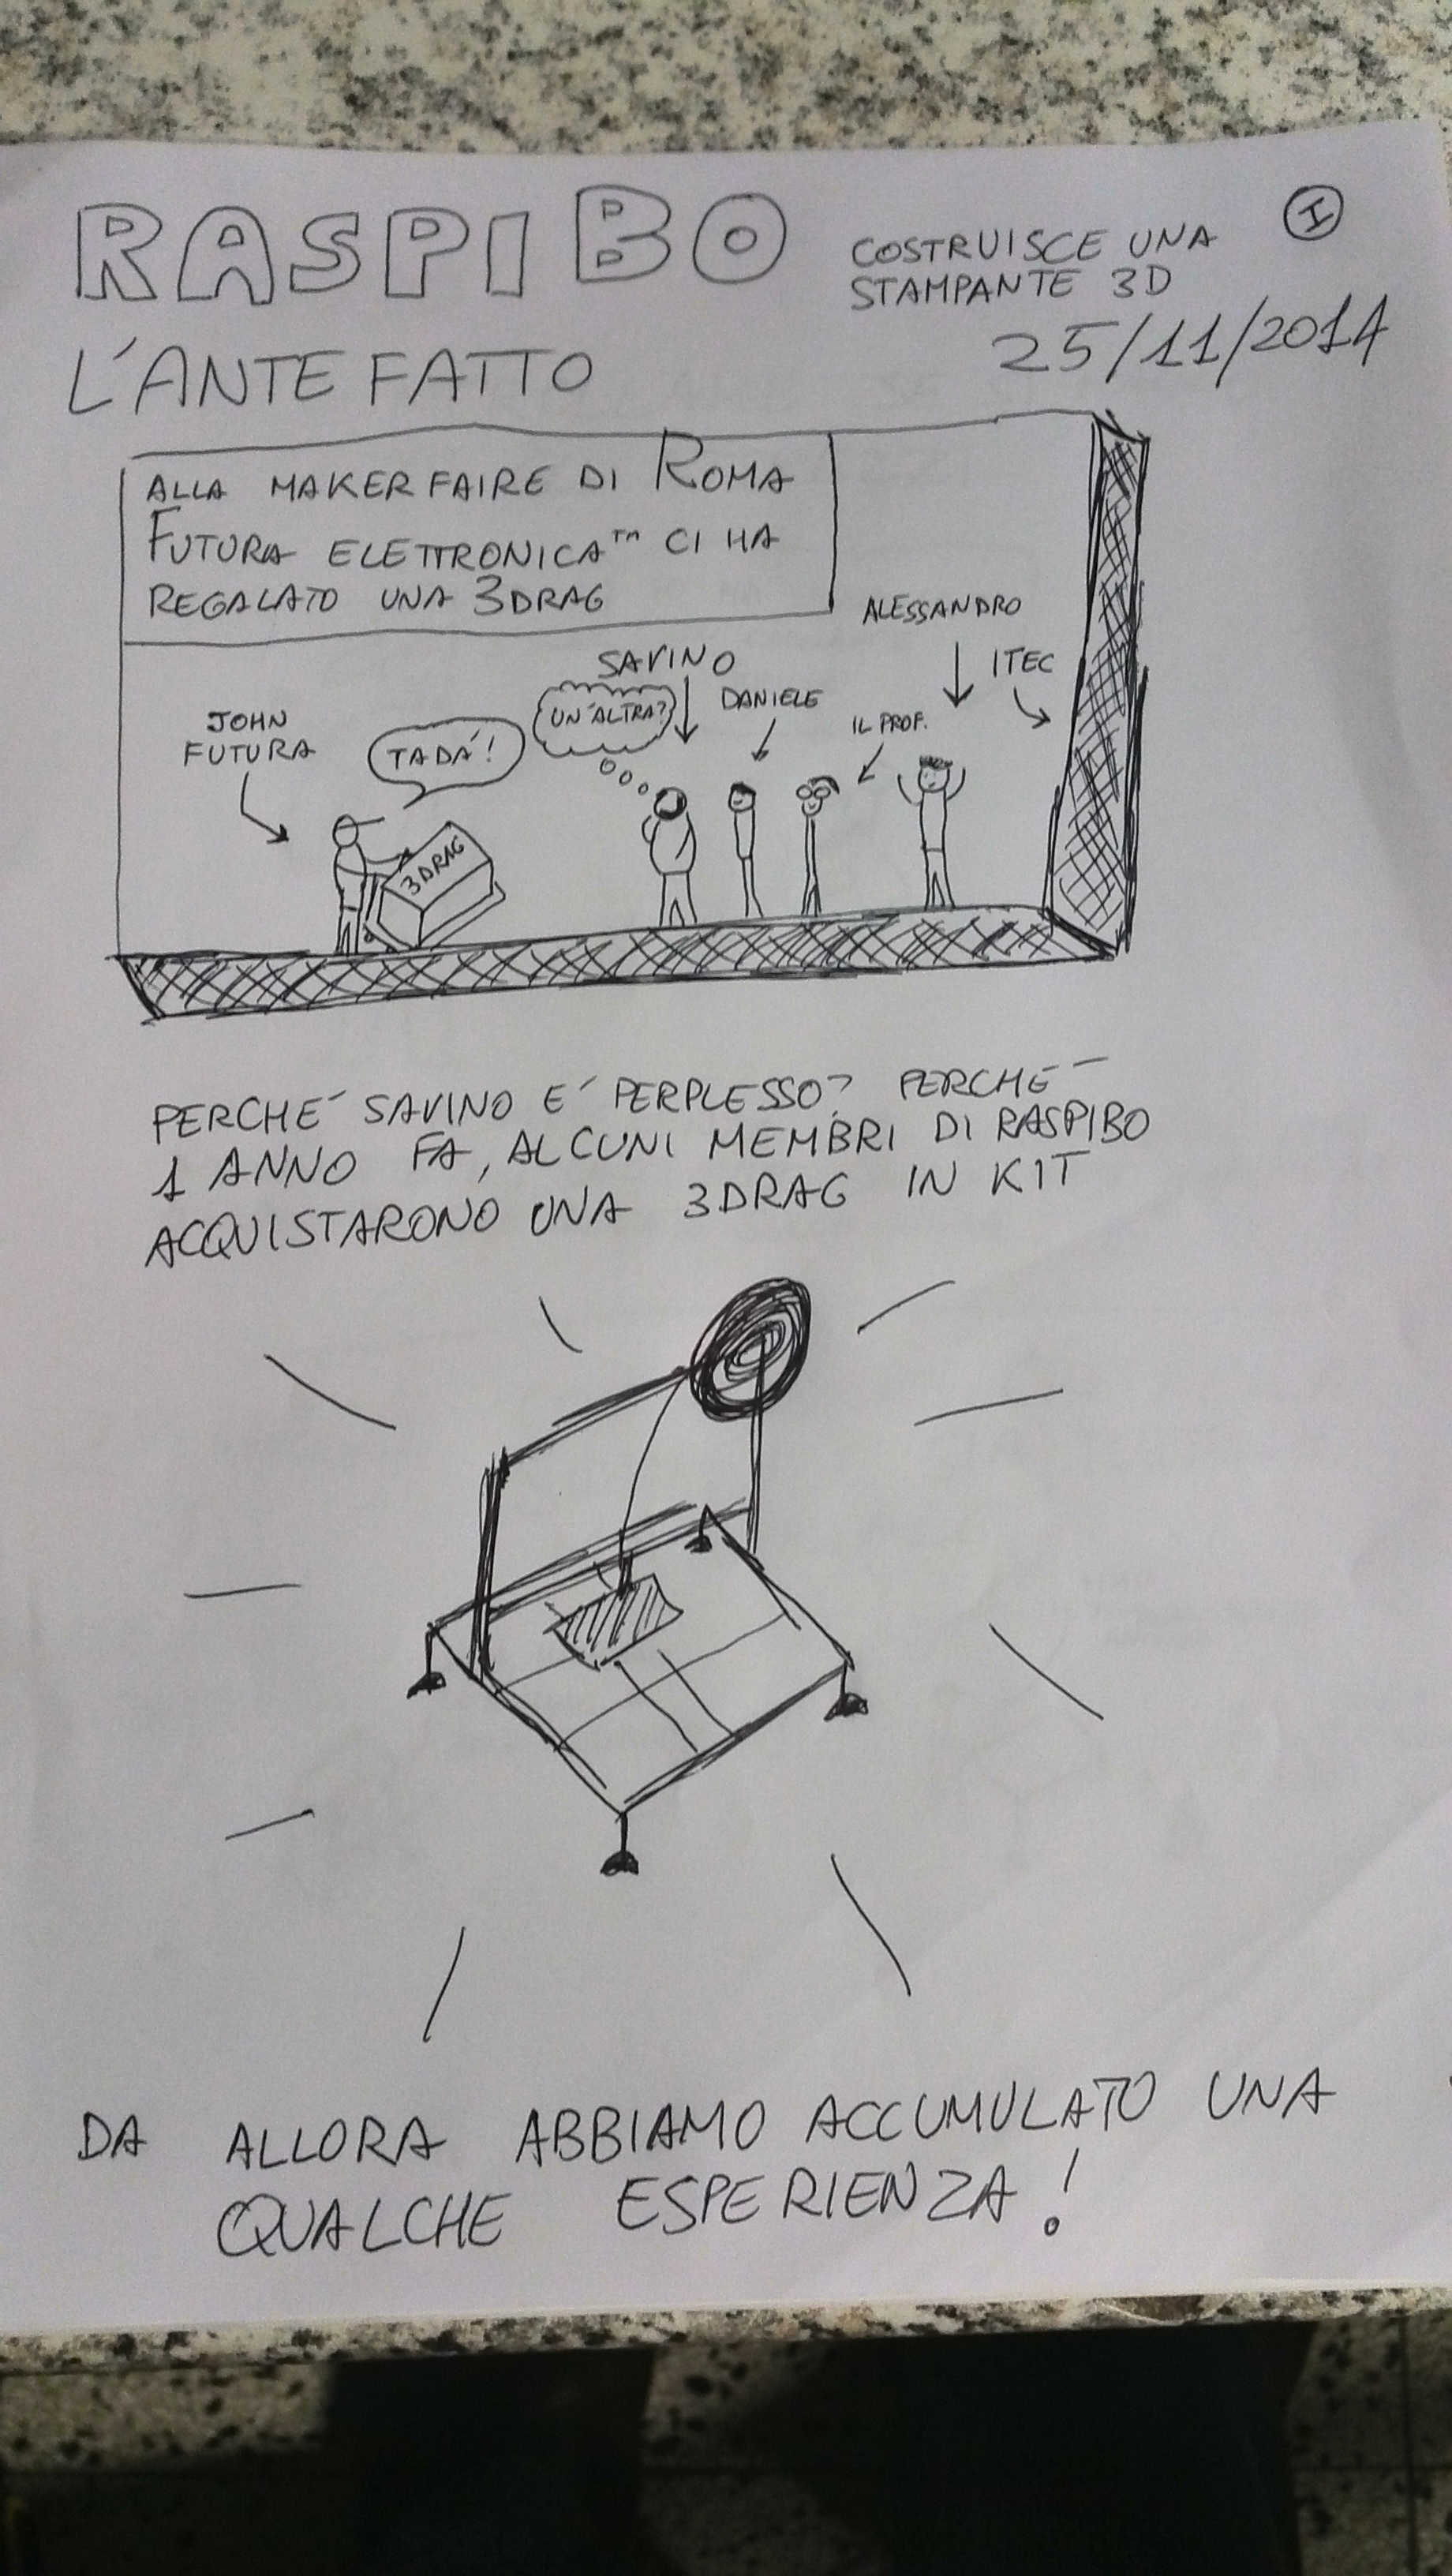 RASPIBO
COSTRUISCE UNA
STAMPANTE 3D
I
25/11/2014
L'ANTEFATTO
ALLA MAKER FAIRE DI ROMA
FUTURA ELETTRONICA™ CI HA
REGALATO UNA 3DRAG
JOHN
FUTURA
TADÁ!
3DRAG
UN'ALTRA?
SAVINO
DANIELE
IL PROF.
ALESSANDRO
ITEC
PERCHÉ SAVINO E' PERPLESSO? PERCHÉ
1 ANNO FA, ALCUNI MEMBRI DI RASPIBO
ACQUISTARONO UNA 3DRAG IN KIT
DA ALLORA ABBIAMO ACCUMULATO UNA
QUALCHE ESPERIENZA!